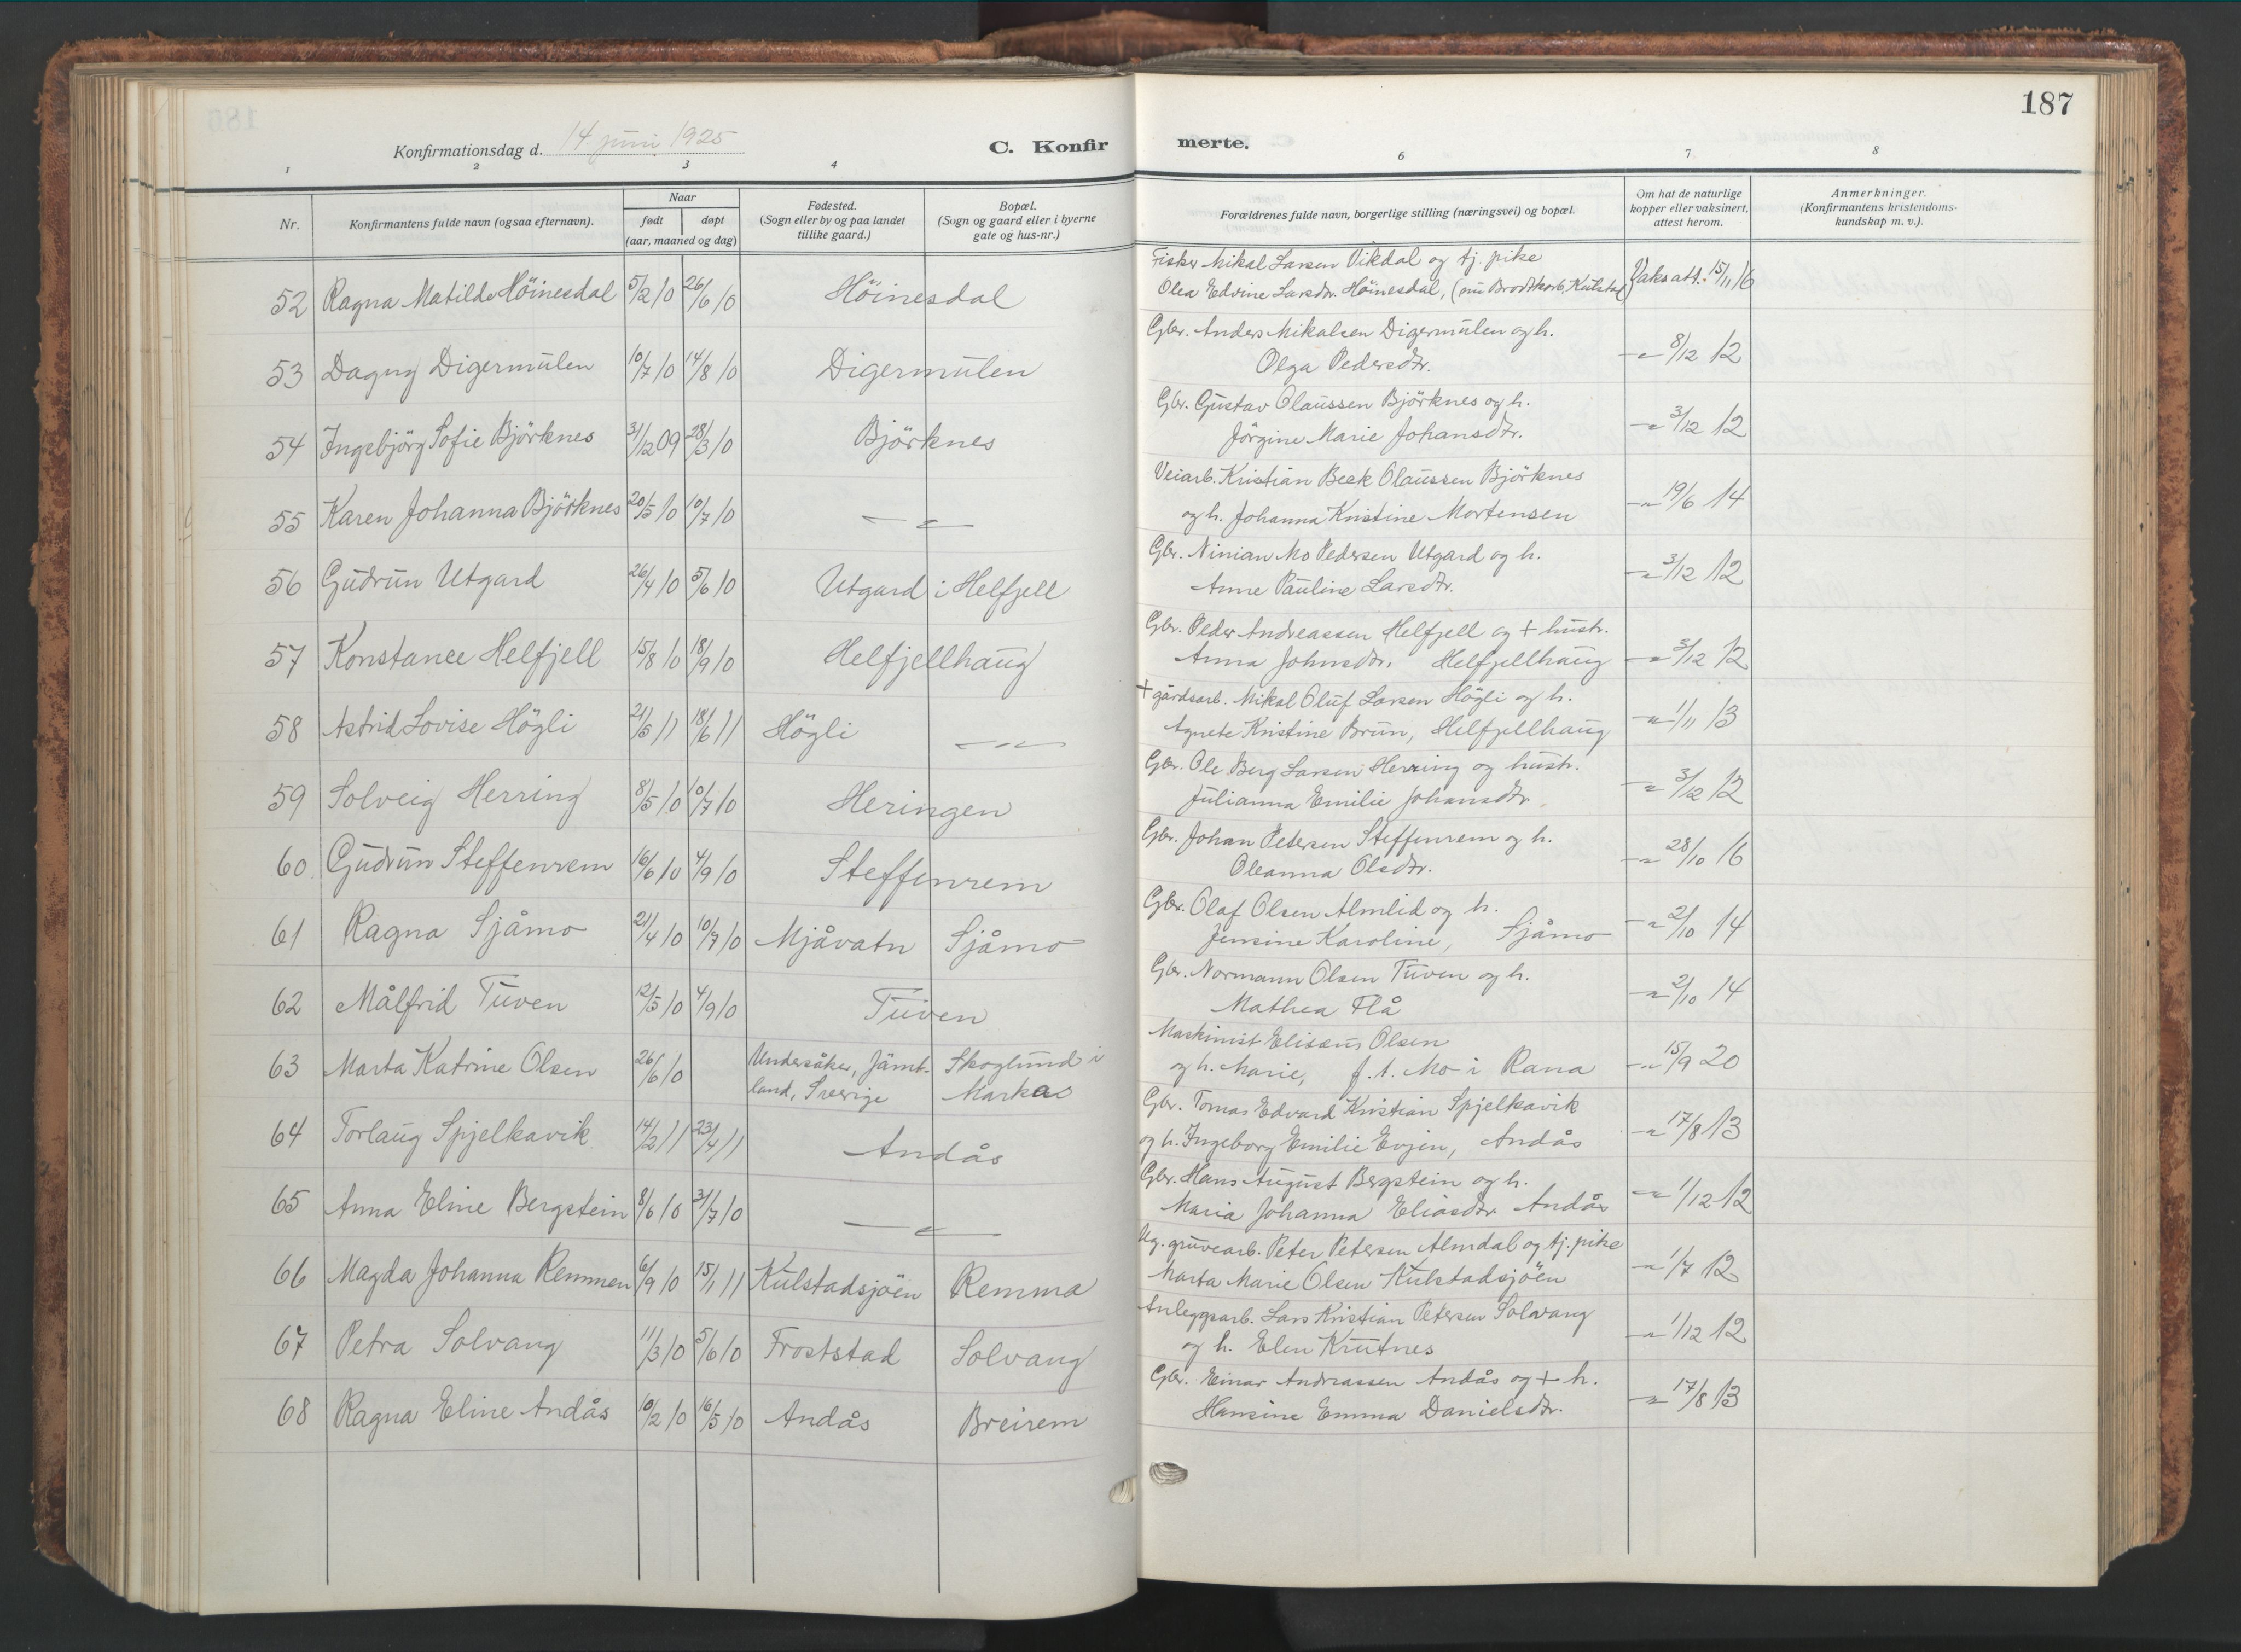 187
Konfirmationsdag d. 14. juni 1925
C. Konfir merte.
1 2 3 4 6 7 8
Nr.
Konfirmantens fulde navn (ogsaa efternavn).
Naar
født døpt
(aar, maaned og dag)
Fødested.
(Sogn eller by og paa landet
tillike gaard.)
Bopæl.
(Sogn og gaard eller i byerne
gate og hus-nr.)
Forældrenes fulde navn, borgerlige stilling (næringsvei) og bopæl.
Om hat de naturlige
kopper eller vaksinert,
attest herom.
Anmerkninger.
(Konfirmantens kristendoms-
kundskap m. v.).
Fisker Mikal Larsen Vikdal og tj. pike
52 Ragna Matilde Höinesdal 5/2 10 26/6 10 Höinesdal Olea Edvine Larsdtr. Höinesdal, (nu Brodtkorb, Kulstad) Vaksatt. 15/11 16
Gbr. Anders Mikalsen Digermulen og h.
53 Dagny Digermulen 10/7 10 14/8 10 Digermulen Olga Pedersdtr. -"- 8/12 12
Gbr. Gustav Olaussen Björknes og h.
54 Ingebjörg Sofie Björknes 31/12 09 28/3 10 Björknes Jörgine Marie Johansdtr. -"- 3/12 12
Veiarb. Kristian Beck Olaussen Björknes
55 Karen Johanna Björknes 20/5 10 10/7 10 -"- og h. Johanna Kristine Mortensen -"- 19/6 14
Gbr. Ninian Mo Pedersen Utgard og h.
56 Gudrun Utgard 26/4 10 5/6 10 Utgard i Helfjell Anne Pauline Larsdtr. -"- 3/12 12
Gbr. Peder Andreassen Helfjell og + hustr.
57 Konstance Helfjell 15/8 10 18/9 10 Helfjellhaug Anna Johnsdtr. Helfjellhaug -"- 3/12 12
+ gårdsarb. Mikal Oluf Larsen Högli og h.
58 Astrid Lovise Högli 21/5 11 18/6 11 Högli -"- Agnete Kristine Brun, Helfjellhaug -"- 1/11 13
Gbr. Ole Berg Larsen Herring og hustr.
59 Solveig Herring 8/5 10 10/7 10 Heringen Julianna Emilie Johansdtr. -"- 3/12 12
Gbr. Johan Petersen Steffenrem og h.
60 Gudrun Steffenrem 16/6 10 4/9 10 Steffenrem Oleanna Olsdtr. -"- 28/10 16
Gbr. Olaf Olsen Almlid og h.
61 Ragna Sjåmo 21/4 10 10/7 10 Mjåvatn Sjåmo Jensine Karoline, Sjåmo -"- 2/10 14
Gbr. Normann Olsen Tuven og h.
62 Målfrid Tuven 12/5 10 4/9 10 Tuven Mathea Flå -"- 2/10 14
Maskinist Elisæus Olsen
63 Marta Katrine Olsen 26/6 10 Undersåker, Jämt- Skoglund i og h. Marie, f. t. Mo i Rana -"- 15/9 20
land, Sverige Markas
Gbr. Tomas Edvard Kristian Spjelkavik
64 Torlaug Spjelkavik 14/2 11 23/4 11 Andås og h. Ingeborg Emilie Evjen, Andås -"- 17/8 13
Gbr. Hans August Bergstein og h.
65 Anna Eline Bergstein 8/6 10 3/7 10 -"- Maria Johanna Eliasdtr. Andås -"- 1/12 12
Ug. gruvearb. Peter Petersen Almdal og tj. pike
66 Magda Johanna Remmen 6/9 10 15/1 11 Kulstadsjöen Remma Marta Marie Olsen Kulstadsjöen -"- 1/7 12
Anleggsarb. Lars Kristian Petersen Solvang
67 Petra Solvang 11/3 10 5/6 10 Froststad Solvang og h. Elen Krutnes -"- 1/12 12
Gbr. Einar Andreassen Andås og + h.
68 Ragna Eline Andås 10/2 10 16/5 10 Andås Breirem Hansine Emma Danielsdtr. -"- 17/8 13